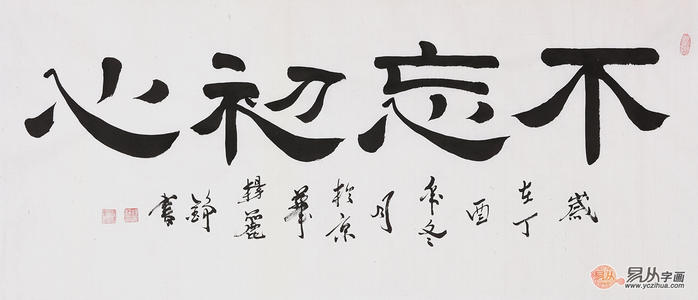 不忘初心
岁在丁酉年冬月於京華楊麗錚書
易从字画
www.yczihua.com